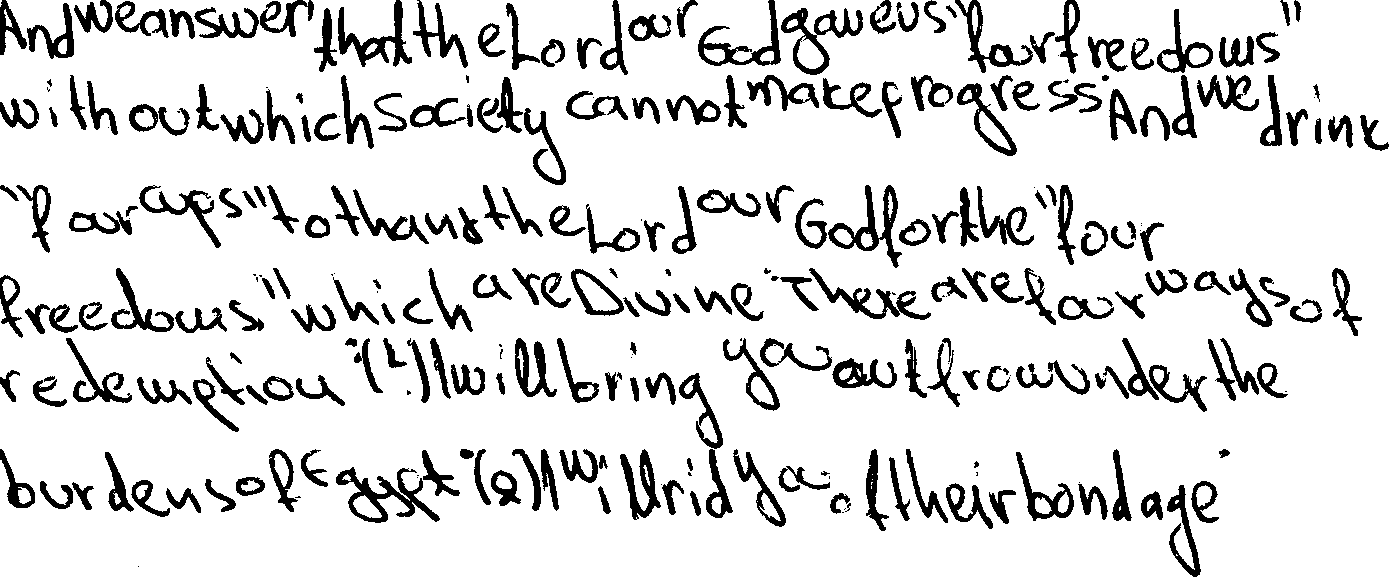 And we answer that the Lord our God gave us "four freedoms"
without which society cannot make progress. And we drink
"four cups" to thank the Lord our God for the "four
freedoms," which are Divine. There are four ways of
redemption. (1.) I will bring you out from under the
burdens of Egypt. (2) I will rid you of their bondage.